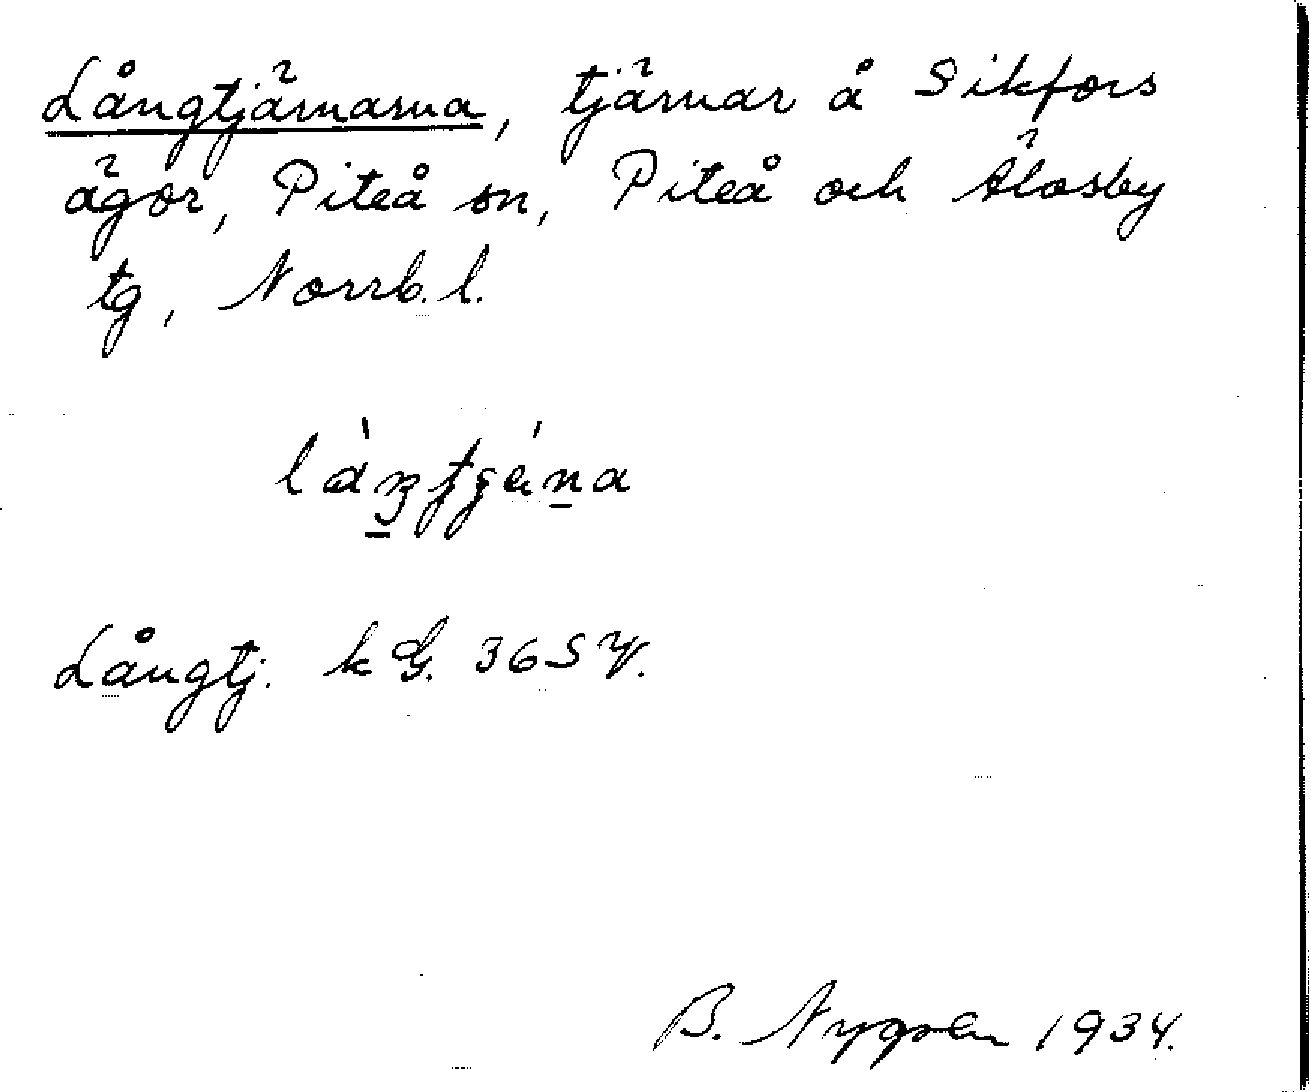 Långtjärnarna, tjärnar å Sikfors
ägor, Piteå sn, Piteå och Älvsby
tg, Norrb. l.
Långtj. k G. 36 S V.
B. Nygren 1934.